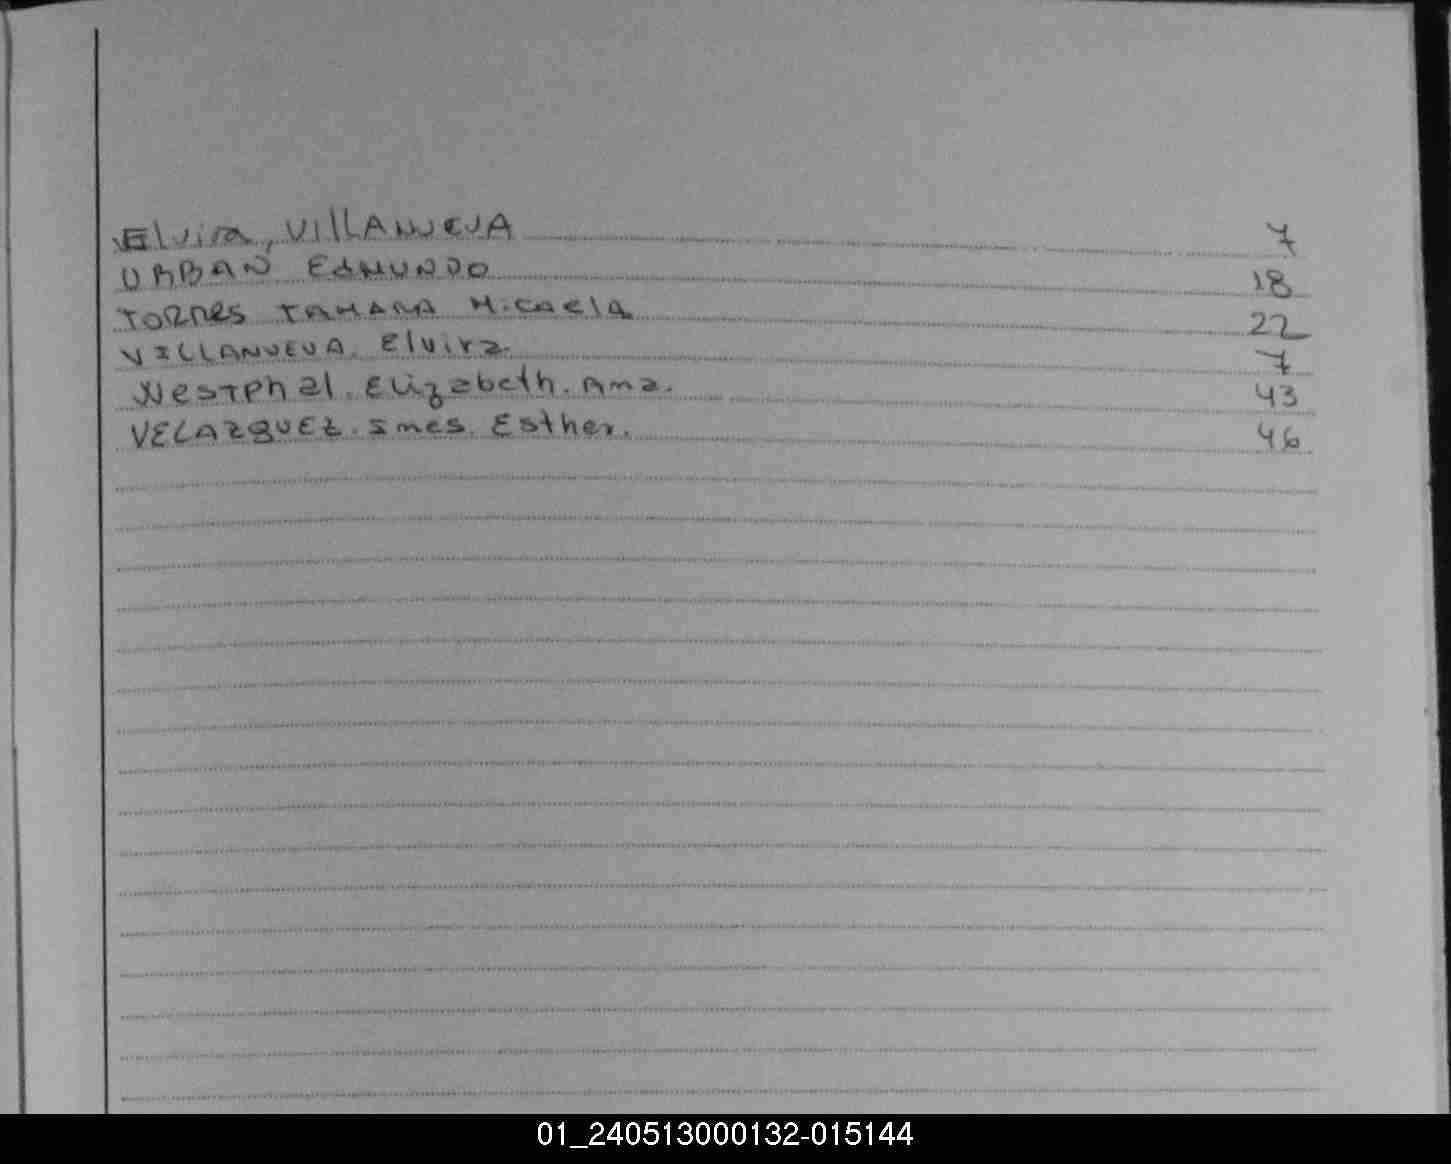 Elvira, VILLANUEVA 7
URBAN EDMUNDO 18
TORRES TAMARA MicaelA 22
VILLANUEVA. Elvira. 7
Westphal. Elizabeth. Ana. 43
VELAZQUEZ. Ines. Esther. 46
01_240513000132-015144